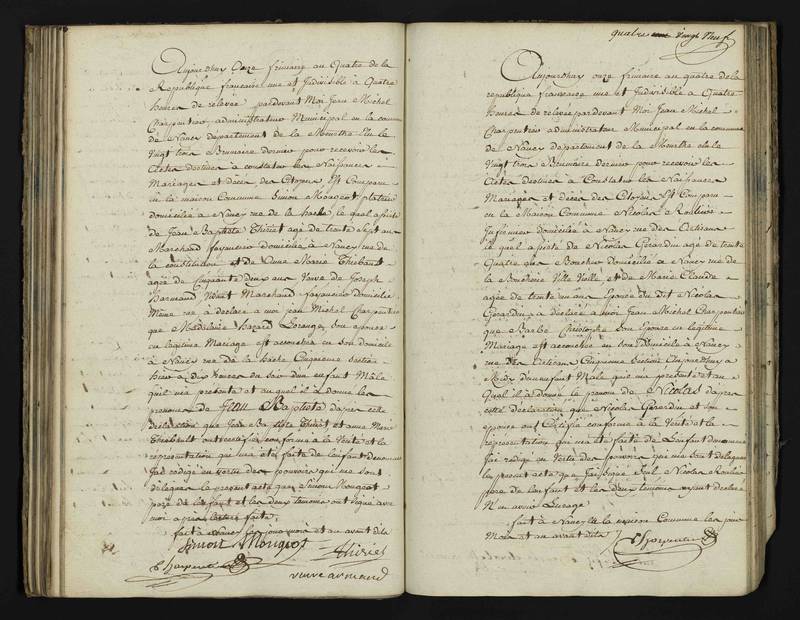 Aujourdhuy Onze frimaire an Quatre de la
République francaise une et Indivisible à Quatre
heures de relevée pardevant Moi Jean Michel
Charpentier administrateur Municipal en la commune
de Nancy departement de la Meurthe élu le
Vingt trois Brumaire dernier pour recevoir les
Actes destinés à constater les Naissances
Mariages et décès des Citoyens Est Comparu
en la maison Commune Simon Mougeot platrier
domicilié a Nancy rue de la hache, lequel assisté
de Jean Baptiste Thiriet agé de trente Sept ans
Marchand fayancier domicilié à Nancy rue de
la constitution et de Anne Marie Thiebault
agée de Cinquante deux ans, Veuve de Joseph
Harmand Vivant Marchand fayancier domiciliée
Même rue à déclaré a moi jean Michel Charpentier
que Madelaine Lorange, Son epouse
en légitime Mariage est accouchée en son domicile
à Nancy rue de la hache Cinquieme Section
hier à dix heures du soir d'un enfant Mâle
qu'il m'a présenté et au quel il a donné les
prenoms de Jean Baptiste d'apres cette
déclaration que Jean Baptiste Thiriet et anne Marie
Thiebault ont certifié conforme à la Verité et la
représentation qui m'a été faite de l'enfant denommé
J'ai redigé en vertu des pouvoirs qui me sont
délégués le present acte que Simon Mougeot
père de l'enfant et les deux temoins ont signé avec
moi apres lecture faite,
fait à Nancy les jour mois et an avant dits
Simon Mougeot Thiriet
Charpentier
veuve armand
quatre vingt Neuf
Aujourdhuy onze frimaire an quatre de la
republique francaise une et Indivisible à Quatre
heures de relevée pardevant Moi Jean Michel
Charpentier administrateur Municipal en la commune
de Nancy departement de la Meurthe élu le
Vingt trois Brumaire dernier pour recevoir les
Actes destinés à Constater les Naissances
Mariages et décès des Citoyens Est Comparu
en la Maison Commune Nicolas
Infirmier domicilié à Nancy rue des Artisans
le quel assisté de Nicolas Gerardin agé de trente
Quatre ans Boucher domicilié a Nancy rue de
la Boucherie Ville Vieille, et de Marie Claude
agée de trente un ans Epouse du Dit Nicolas
Gerardin a declaré a moi Jean Michel Charpentier
que Barbe Christophe son Epouse en légitime
Mariage est accouchée en son Domicile à Nancy
rue des Artisans Cinquieme Section Aujourdhuy a
Midy d'un enfant Male qu'il m'a présenté et au
Quel il à donné le prenom de Nicolas d'apres
cette declaration que Nicolas Gerardin et Son
epouse ont Certifié conforme à la Verité et la
représentation qui m'a été faite de L'enfant denommé
J'ai redigé en Vertu des pouvoirs qui me sont délégués
le present acte que J'ai signé Seul Nicolas
père de l'enfant et les deux témoins ayant déclaré
N'en avoir L'usage
fait à Nancy en la maison Commune les jour
Mois et an avant dits
Charpentier